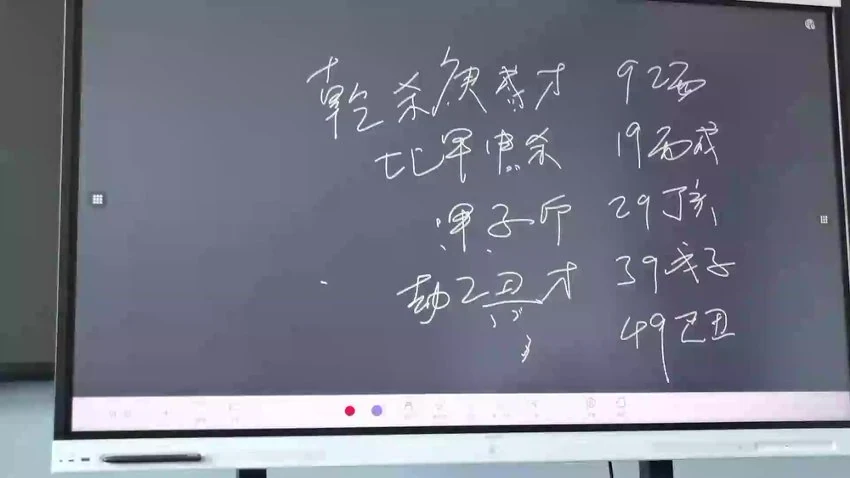 乾 杀庚戌才 9乙酉
比甲申杀 19丙戌
日甲子印 29丁亥
劫乙丑才 39戊子
49己丑